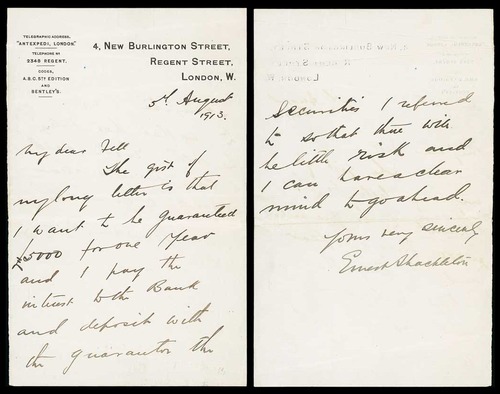 TELEGRAPHIC ADDRESS,
"ANTEXPEDI, LONDON"
TELEPHONE Nº
2348 REGENT.
CODES,
A.B.C. 5TH EDITION
AND
BENTLEY'S.
4, NEW BURLINGTON STREET,
REGENT STREET,
LONDON, W.
5th August
1913.
My dear Fell
The gist of
my long letter is that
I want to be guaranteed
£5000 for one year
and I pay the
interest to the Bank
and deposit with
the guarantor the
securities I referred
to so that there will
be little risk and
I can have a clear
mind to go ahead.
Yours very sincerely
Ernest Shackleton